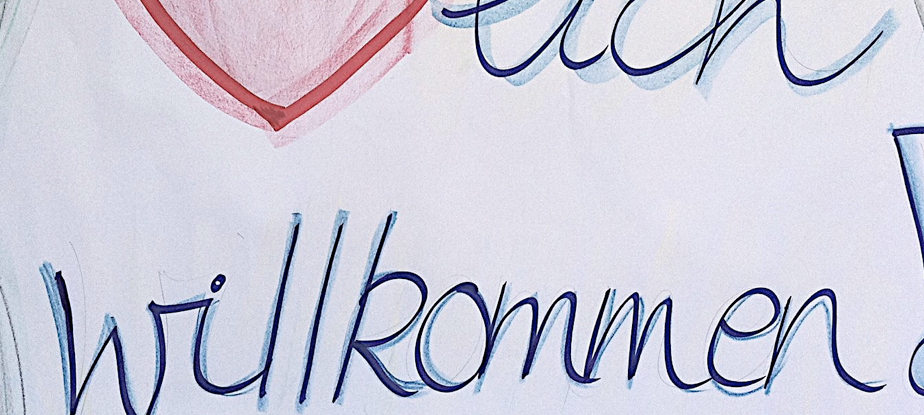 lich
willkommen!